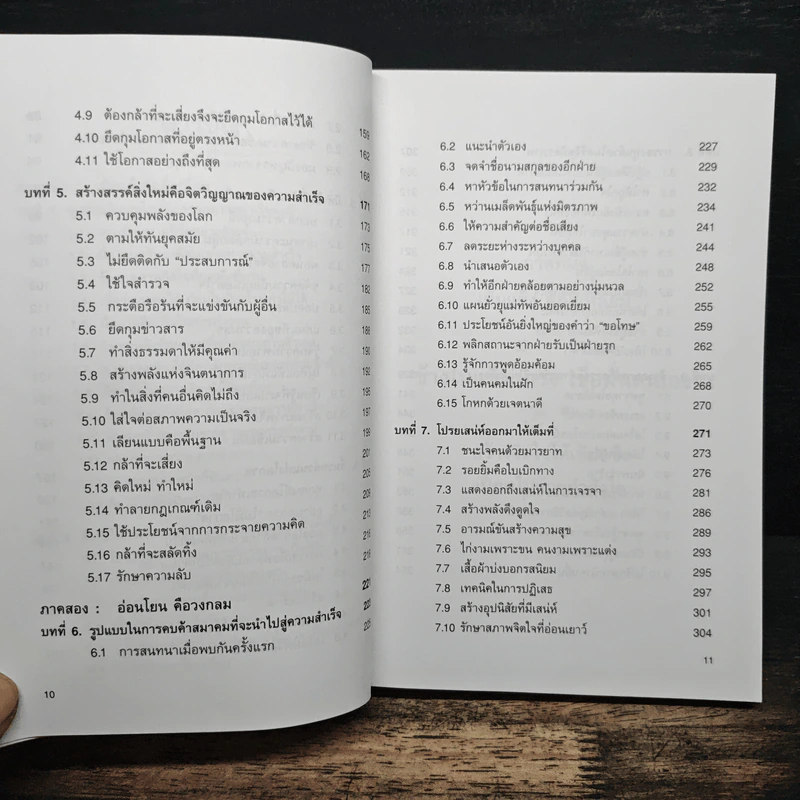 4.9 ต้องกล้าที่จะเสี่ยงจึงจะยึดกุมโอกาสไว้ได้ 159
4.10 ยึดกุมโอกาสที่อยู่ตรงหน้า 162
4.11 ใช้โอกาสอย่างถึงที่สุด 168
บทที่ 5. สร้างสรรค์สิ่งใหม่คือจิตวิญญาณของความสำเร็จ 171
5.1 ควบคุมพลังของโลก 173
5.2 ตามให้ทันยุคสมัย 175
5.3 ไม่ยึดติดกับ “ประสบการณ์” 177
5.4 ใช้ใจสำรวจ 182
5.5 กระตือรือร้นที่จะแข่งขันกับผู้อื่น 185
5.6 ยึดกุมข่าวสาร 188
5.7 ทำสิ่งธรรมดาให้มีคุณค่า 190
5.8 สร้างพลังแห่งจินตนาการ 192
5.9 ทำในสิ่งที่คนอื่นคิดไม่ถึง 195
5.10 ใส่ใจต่อสภาพความเป็นจริง 197
5.11 เลียนแบบคือพื้นฐาน 199
5.12 กล้าที่จะเสี่ยง 201
5.13 คิดใหม่ ทำใหม่ 205
5.14 ทำลายกฎเกณฑ์เดิม 208
5.15 ใช้ประโยชน์จากการกระจายความคิด
5.16 กล้าที่จะสลัดทิ้ง
5.17 รักษาความลับ
ภาคสอง : อ่อนโยน คือวงกลม
บทที่ 6. รูปแบบในการคบค้าสมาคมที่จะนำไปสู่ความสำเร็จ
6.1 การสนทนาเมื่อพบกันครั้งแรก
10
6.2 แนะนำตัวเอง 227
6.3 จดจำชื่อนามสกุลของอีกฝ่าย 229
6.4 หาหัวข้อในการสนทนาร่วมกัน 232
6.5 หว่านเมล็ดพันธุ์แห่งมิตรภาพ 234
6.6 ให้ความสำคัญต่อชื่อเสียง 241
6.7 ลดระยะห่างระหว่างบุคคล 244
6.8 นำเสนอตัวเอง 248
6.9 ทำให้อีกฝ่ายคล้อยตามอย่างนุ่มนวล 252
6.10 แผนยั่วยุแม่ทัพอันยอดเยี่ยม 255
6.11 ประโยชน์อันยิ่งใหญ่ของคำว่า “ขอโทษ” 259
6.12 พลิกสถานะจากฝ่ายรับเป็นฝ่ายรุก 262
6.13 รู้จักการพูดอ้อมค้อม 265
6.14 เป็นคนคมในฝัก 268
6.15 โกหกด้วยเจตนาดี 270
บทที่ 7. โปรยเสน่ห์ออกมาให้เต็มที่ 271
7.1 ชนะใจคนด้วยมารยาท 273
7.2 รอยยิ้มคือใบเบิกทาง 276
7.3 แสดงออกถึงเสน่ห์ในการเจรจา 281
7.4 สร้างพลังดึงดูดใจ 286
7.5 อารมณ์ขันสร้างความสุข 289
7.6 ไก่งามเพราะขน คนงามเพราะแต่ง 293
7.7 เสื้อผ้าบ่งบอกรสนิยม 295
7.8 เทคนิคในการปฏิเสธ 297
7.9 สร้างอุปนิสัยที่มีเสน่ห์ 301
7.10 รักษาสภาพจิตใจที่อ่อนเยาว์ 304
11